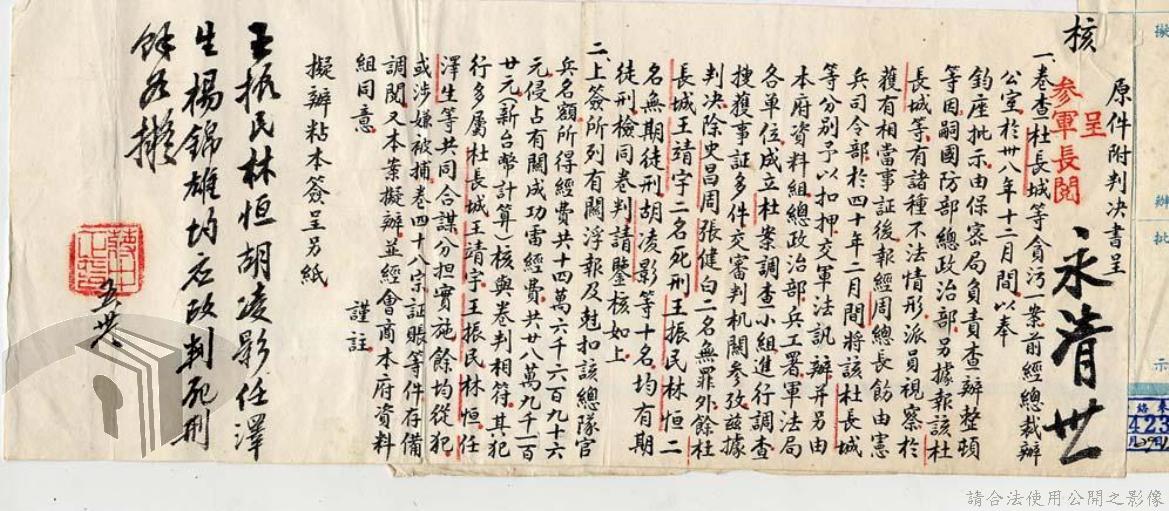 擬辦
批示
423
原件附判决書呈
呈
參軍長閱
永清
核
一、卷查杜長城等貪污一案前經總裁辦
公室於卅八年十二月間以奉
鈞座批示由保密局負責查辦整頓
等因嗣國防部總政治部另據報該杜
長城等有諸種不法情形派員視察於
獲有相當事証後報經周總長飭由憲
兵司令部於四十年二月間將該杜長城
等分別予以扣押交軍法訊辦并另由
本府資料組總政治部兵工署軍法局
各單位成立杜案調查小組進行調查
搜獲事証多件交審判机關參攷兹據
判决除史昌周張健白二名無罪外餘杜
長城王靖宇二名死刑王振民林恒二
名無期徒刑胡凌影等十名均有期
徒刑檢同卷判請鑒核如上
二、上簽所列有關浮報及尅扣該總隊官
兵名額所得經費共十四萬六千六百九十六
元侵占有關成功雷經費共廿八萬九千一百
廿元(新台幣計算)核與卷判相符其犯
行多屬杜長城王靖宇王振民林恒任
澤生等共同合謀分担實施餘均從犯
或涉嫌被捕卷四十八宗証賬等件存備
調閱又本案擬辦並經會商本府資料
組同意
謹註
擬辦粘本簽呈另紙
王振民林恒胡凌影任澤
生楊錦雄均應改判死刑
餘如擬
蔣中正印
請合法使用公開之影像